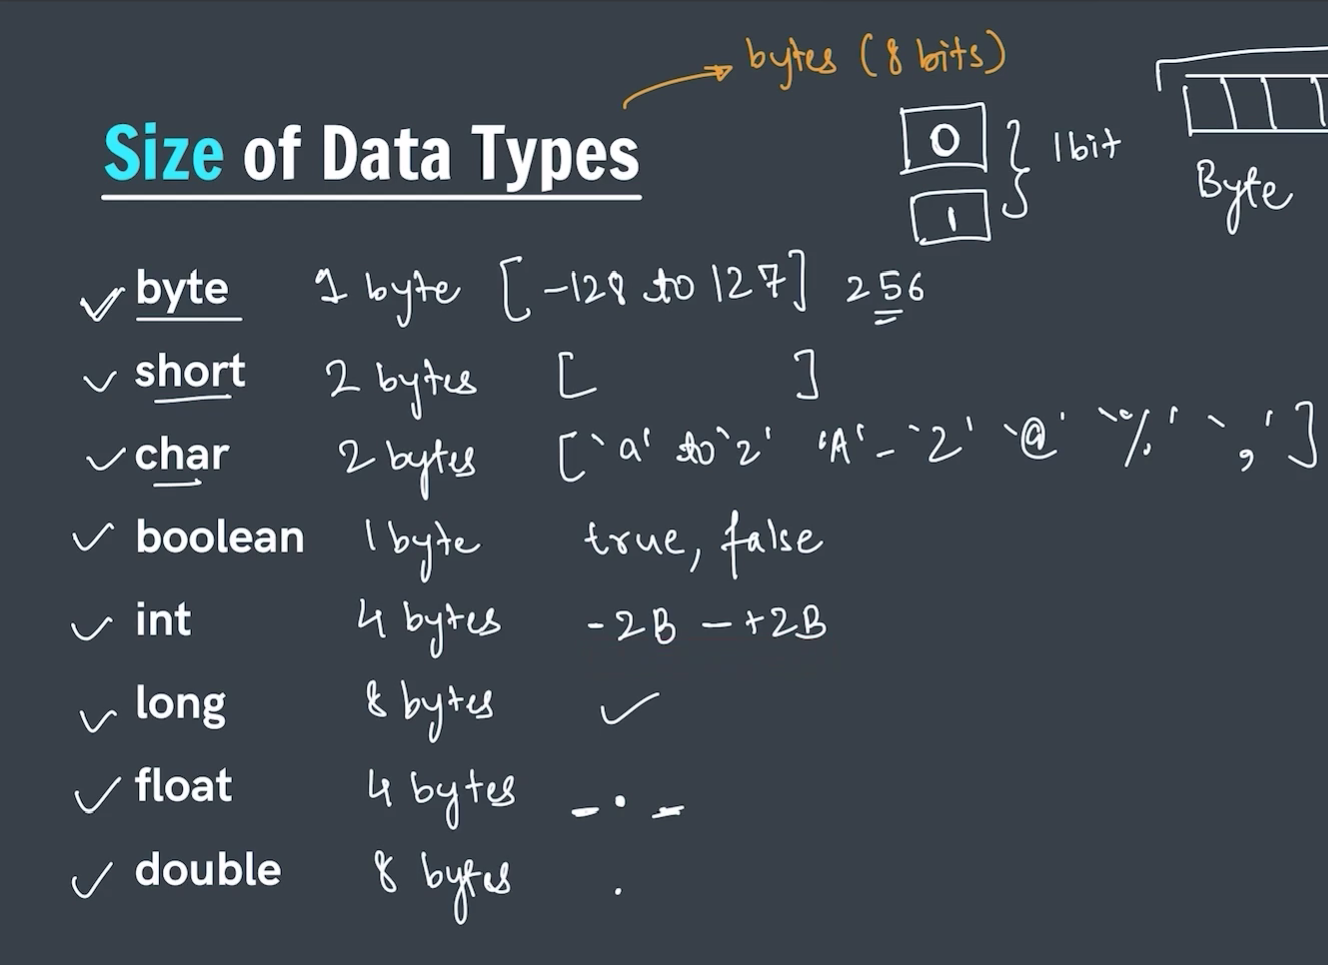 bytes (8 bits)
0
1
1 bit
Byte
Size of Data Types
byte 1 byte [-128 to 127] 256
short 2 bytes [ ]
char 2 bytes ['a' to 'z' 'A' - 'Z' '@' '%' ',']
boolean 1 byte true, false
int 4 bytes -2B - +2B
long 8 bytes
float 4 bytes _._
double 8 bytes .